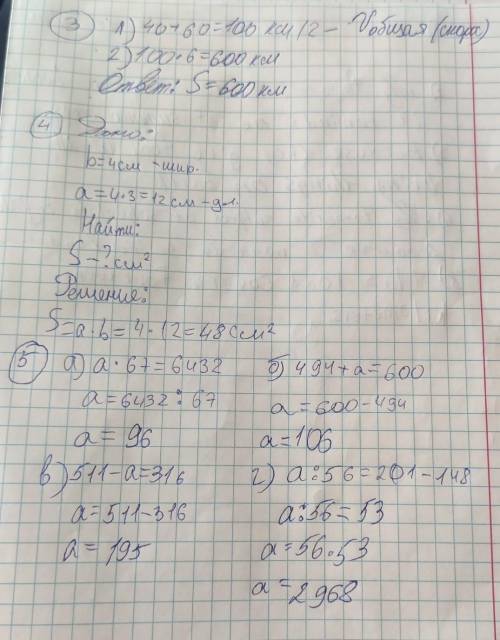 3 1) 40+60=100 км/2 - Vобщая (скорь)
2) 100·6=600 км
Ответ: S=600 км
4 Дано:
b=4см - шир.
a=4·3=12см - дл.
Найти:
S-? см²
Решение:
S=a·b=4·12=48см²
5 а) a·67=6432
a=6432:67
a=96
б) 494+a=600
a=600-494
a=106
в) 511-a=316
a=511-316
a=195
г) a:56=201-148
a:56=53
a=56·53
a=2968